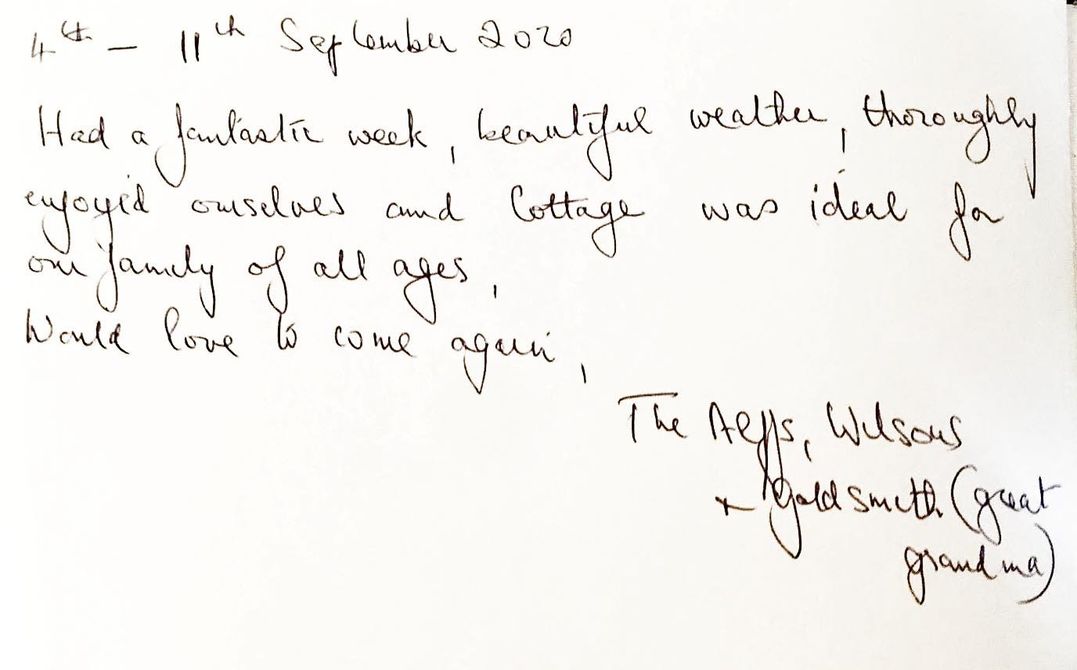 4th – 11th September 2020
Had a fantastic week, beautiful weather, thoroughly
enjoyed ourselves and Cottage was ideal for
our family of all ages,
Would love to come again,
The Wilsons
+ Goldsmith (great
grandma)